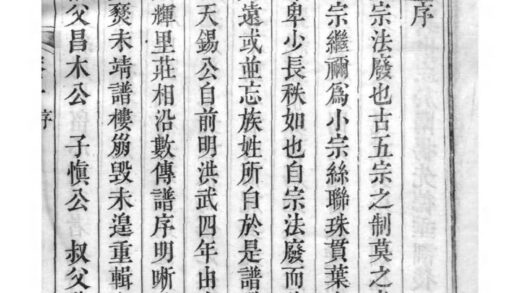 序
宗法廢也古五宗之制莫之
宗繼禰爲小宗絲聯珠貫葉
卑少長秩如也自宗法廢而
遠或並忘族姓所自於是譜
天錫公自前明洪武四年由
輝里莊相沿數傳譜序明晰
燹未靖譜樓崩毀未遑重輯
父昌木公 子愼公 叔父
序